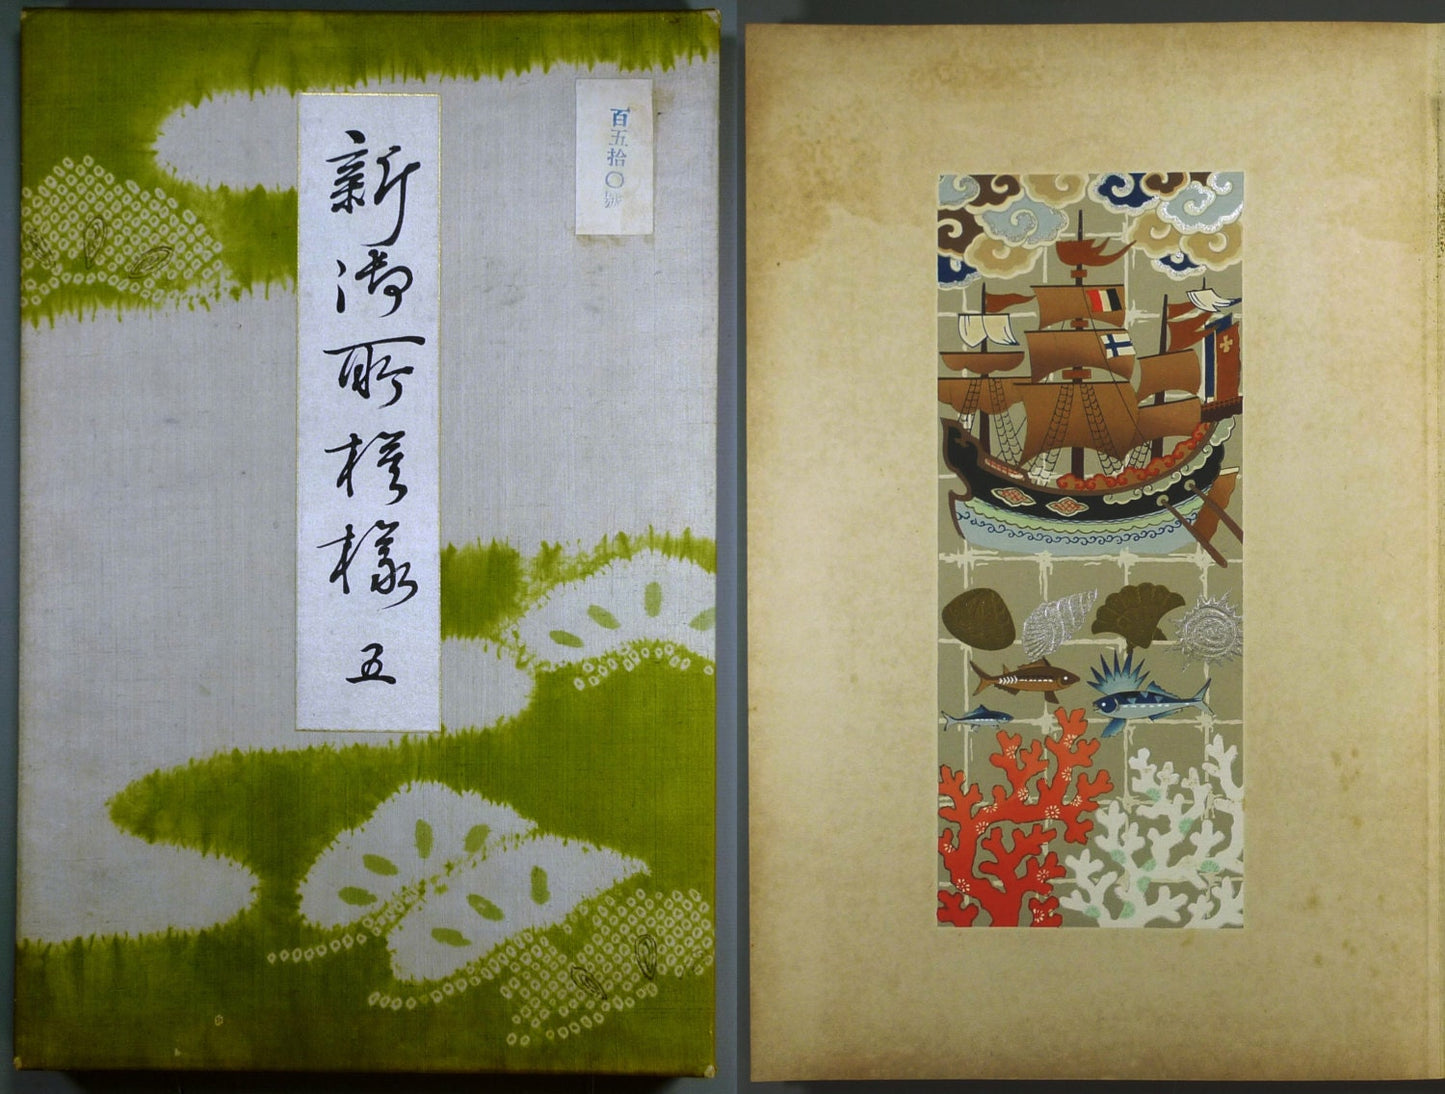 新御所模様 五
百五拾〇號